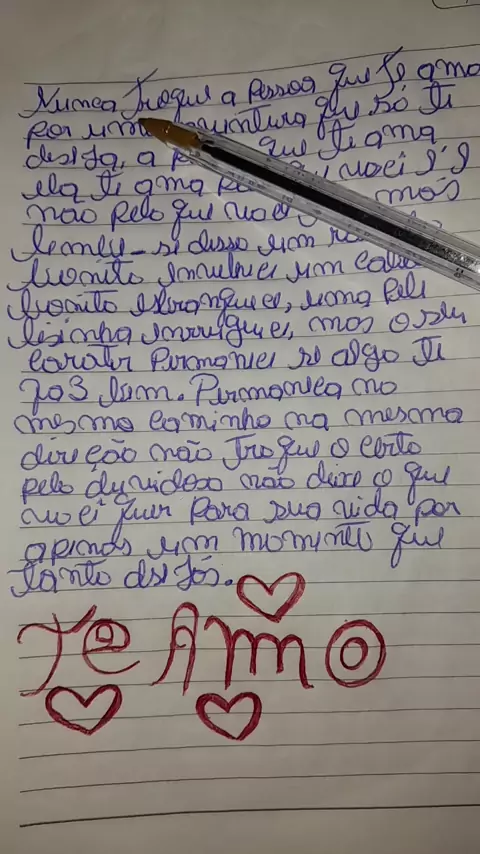 Nunca Troque a Pessoa que Te ama
por uma aventura que só Ti
deseja, a que Ti ama
ela Ti ama
não pelo que voce mas
lembre-se disso um
bonito envelhece um cabelo
bonito esbranquece, uma pele
lisinha enrruguece, mas o seu
carater Permanece se algo Te
faz bem. Permaneca no
mesmo caminho na mesma
direção não Troque o certo
pelo duvidoso não deixe o que
voce quer Para sua vida por
apenas um momento que
tanto deseja.
Te Amo